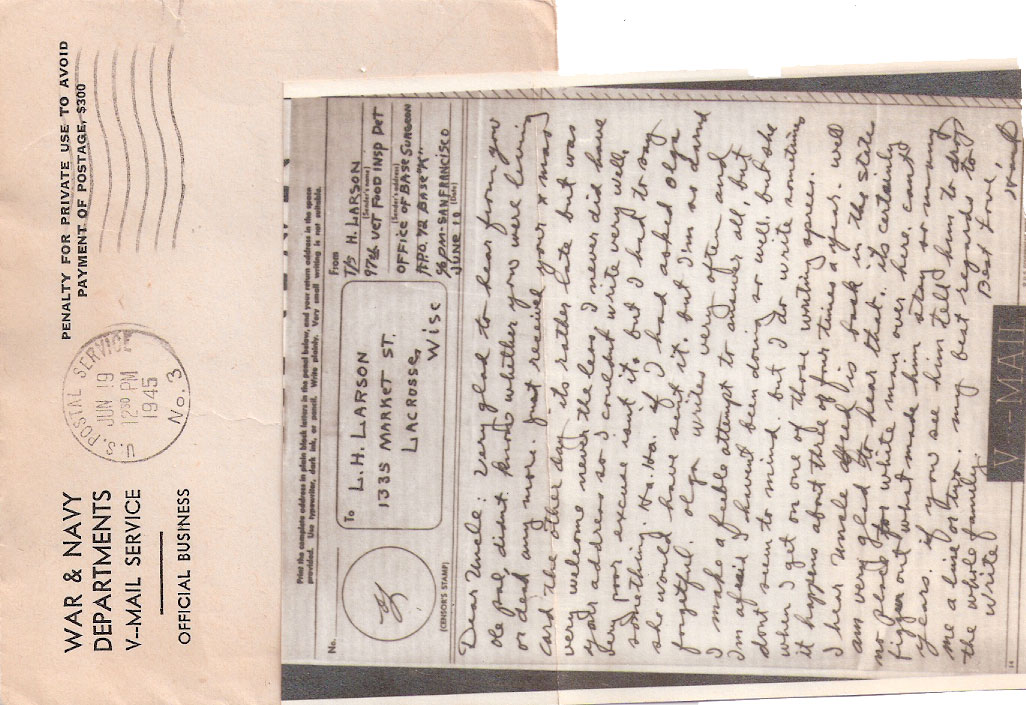 WAR & NAVY
DEPARTMENTS
V--MAIL SERVICE
OFFICIAL BUSINESS
U.S. POSTAL SERVICE
JUN 19
12 30 PM
1945
No. 3
PENALTY FOR PRIVATE USE TO AVOID
PAYMENT OF POSTAGE, $300
Print the complete address in plain block letters in the panel below, and your return address in the space
provided. Use typewriter, dark ink, or pencil. Write plainly. Very small writing is not suitable.
No.
(CENSOR'S STAMP)
To
L.H. LARSON
1335 MARKET ST.
LACROSSE,
WISC
From
T/5 H. LARSON
(Sender's name)
97th VET FOOD INSP DET
(Sender's address)
OFFICE OF BASE SURGEON
A.P.O. 72 BASE "K"
℅ PM-SAN FRANCISCO
JUNE 10
(Date)
Dear Uncle: Very glad to hear from you
ole pal, didnt know whether you were living
or dead any more. Just received your xmas
card the other day its rather late but was
very welcome never the less I never did have
your address so I couldnt write very well.
Very poor excuse isnt it, but I had to say
something. Ha. Ha. If I had asked Olga
she would have sent it. but I'm so darnd
forgetful. Olga writes very often and
I make a feable attempt to answer all, but
I'm afraid I havent been doing so well, but she
dont seem to mind. but I do write sometimes
when I get on one of those writing sprees. well
it happens about three of four times a year.
I hear Uncle is back in the States
am very glad to hear that. its certainly
no place for white man over here. cant
figger out what made him stay so many
years. if you see him tell him to drop
me a line or two. my best regards to
the whole family. Best Love,
Write
V-MAIL